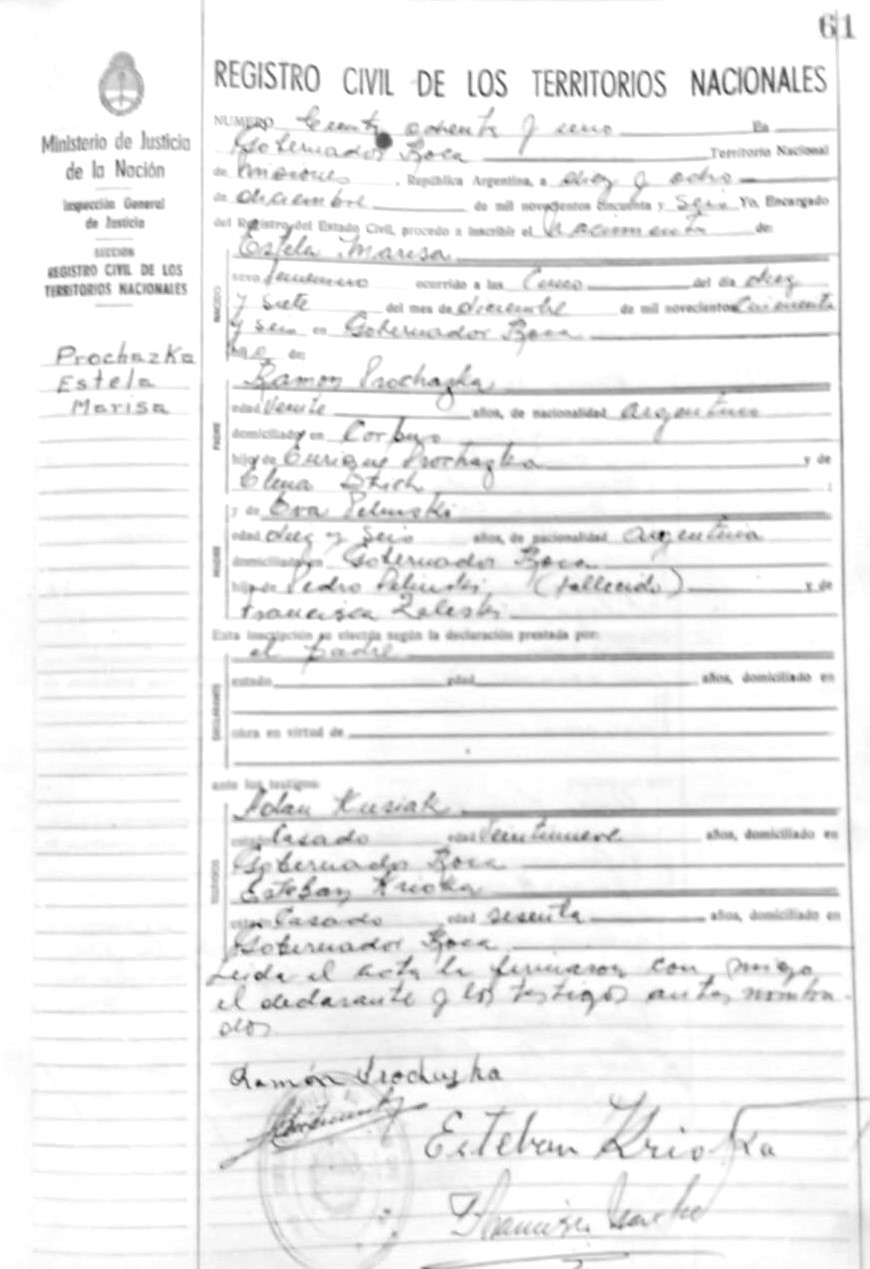 61
REGISTRO CIVIL DE LOS TERRITORIOS NACIONALES
Ministerio de Justicia
de la Nación
Inspección General
de Justicia
SECCION
REGISTRO CIVIL DE LOS
TERRITORIOS NACIONALES
Prochazka
Estela
Marisa
NUMERO ochenta y En
Gobernador Roca Territorio Nacional
de Misiones, República Argentina, a diez y ocho
de diciembre de mil novecientos cincuenta y seis Yo, Encargado
del Registro del Estado Civil, procedo a inscribir el nacimiento de:
Estela Marisa
NACIDO
sexo femenino ocurrido a las del día diez
y siete del mes de diciembre de mil novecientos cincuenta
y seis en Gobernador Roca
hija de:
PADRE
Ramon Prochazka
edad veinte años, de nacionalidad argentina
domiciliado en Corpus
hijo de Enrique Prochazka y de
Elena
MADRE
y de Eva Pelinski
edad diez y seis años, de nacionalidad argentina
domiciliada en Gobernador Roca
hija de Pedro Pelinski (fallecido) y de
Francisca Zaleski
Esta inscripción se efectúa según la declaración prestada por:
el padre
DECLARANTE
estado edad años, domiciliado en
obra en virtud de
ante los testigos:
TESTIGOS
Adan Kusiak
estado Casado edad veintinueve años, domiciliado en
Gobernador Roca
Esteban Krioka
estado Casado edad sesenta años, domiciliado en
Gobernador Roca
Leida el acta la firmaron con migo
el declarante y los testigos antes nombra-
dos
Ramón Prochazka
Esteban